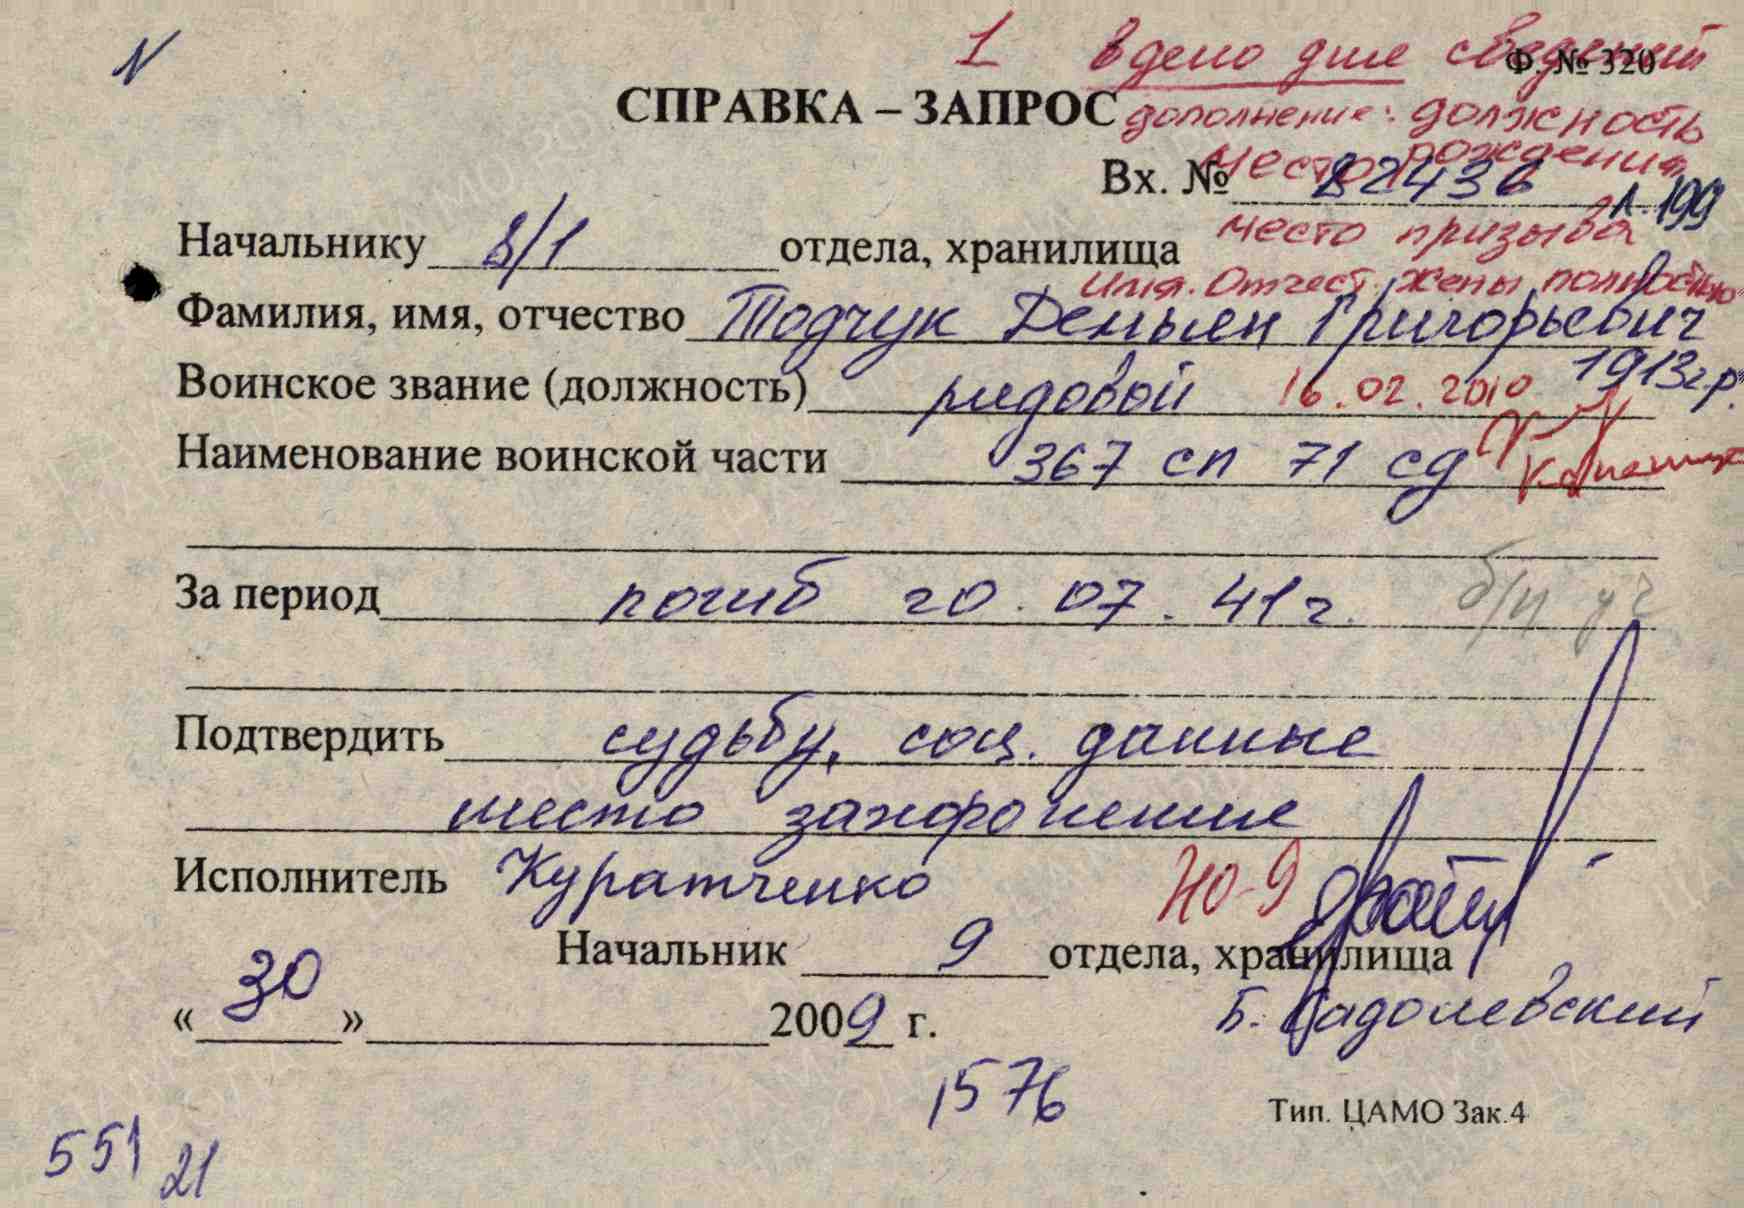 N
1 в дело для сведений
Ф. № 320
СПРАВКА – ЗАПРОС
дополнение: должность
место рождения
Вх. № 22436
л. 199
место призыва
Начальнику 8/1 отдела, хранилища
имя. Отчест. жены полностью
Фамилия, имя, отчество Тодчук Демьян Григорьевич
1913г.р.
Воинское звание (должность) рядовой 16.02.2010
Наименование воинской части 367 сп 71 сд
За период погиб 20.07.41г. б/п
Подтвердить судьбу, соц. данные
место захоронение
Исполнитель Куратченко
НО-9
Начальник 9 отдела, хранилища
«30» 2009 г.
Б. Садолевский
1576
Тип. ЦАМО Зак.4
551 21